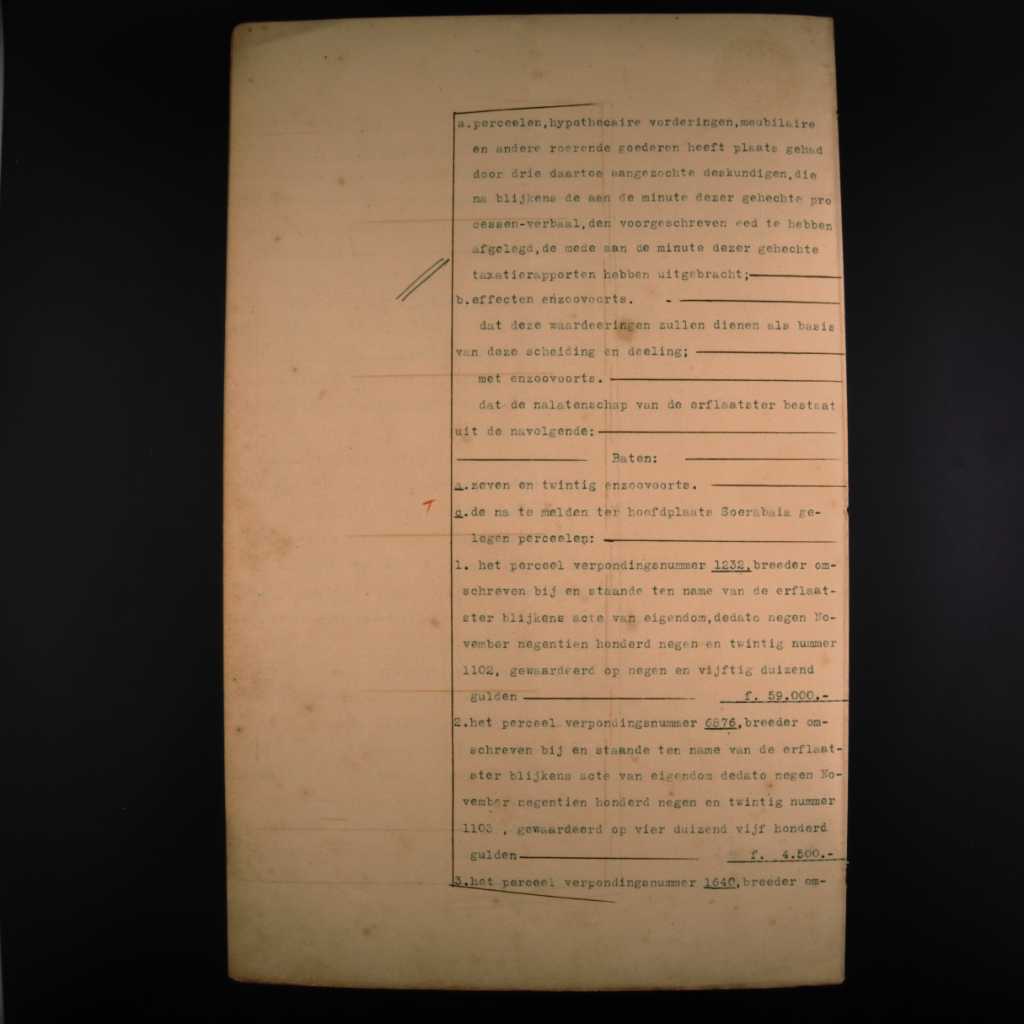 a.perceelen,hypothecaire vorderingen,meubilaire
en andere roerende goederen heeft plaats gehad
door drie daartoe aangezochte deskundigen,die
na blijkens de aan de minute dezer gehechte pro
cessen-verbaal,den voorgeschreven eed te hebben
afgelegd,de mede aan de minute dezer gehechte
taxatierapporten hebben uitgebracht;
b.effecten enzoovoorts. -
dat deze waardeeringen zullen dienen als basis
van deze scheiding en deeling;
met enzoovoorts.
dat de nalatenschap van de erflaatster bestaat
uit de navolgende:
Baten:
a.zeven en twintig enzoovoorts.
c.de na te melden ter hoofdplaats Soerabaia ge-
legen perceelen:
1. het perceel verpondingsnummer 1232,breeder om-
schreven bij en staande ten name van de erflaat-
ster blijkens acte van eigendom,dedato negen No-
vember negentien honderd negen en twintig nummer
1102, gewaardeerd op negen en vijftig duizend
gulden f. 59.000.-
2.het perceel verpondingsnummer 6876,breeder om-
schreven bij en staande ten name van de erflaat-
ster blijkens acte van eigendom dedato negen No-
vember negentien honderd negen en twintig nummer
1103 , gewaardeerd op vier duizend vijf honderd
gulden f. 4.500.-
3.het perceel verpondingsnummer 1640,breeder om-